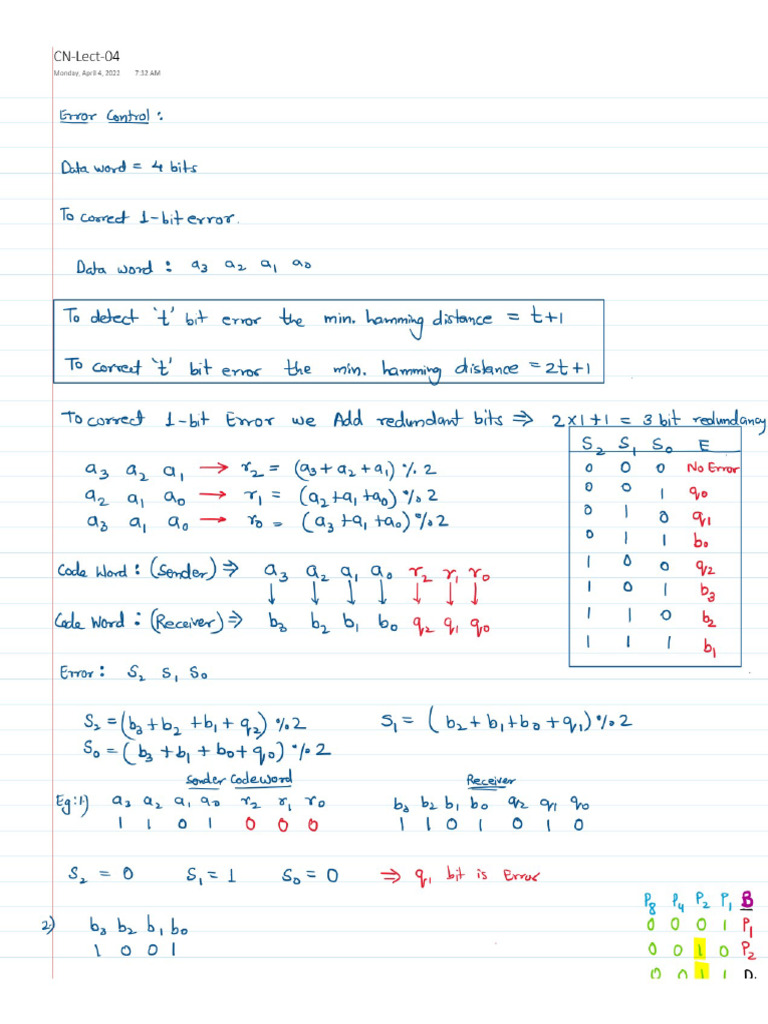 CN-Lect-04
Monday, April 4, 2022 7:52 AM
Error Control :
Data word = 4 bits
To correct 1-bit error.
Data word : a3 a2 a1 a0
To detect 't' bit error the min. hamming distance = t+1
To correct 't' bit error the min. hamming distance = 2t+1
To correct 1-bit Error we Add redundant bits ⇒ 2×1+1 = 3 bit redundancy
S2 S1 S0 E
0 0 0 No Error
0 0 1 q0
0 1 0 q1
0 1 1 b0
1 0 0 q2
1 0 1 b3
1 1 0 b2
1 1 1 b1
a3 a2 a1 → r2 = (a3 + a2 + a1) % 2
a2 a1 a0 → r1 = (a2 + a1 + a0) % 2
a3 a1 a0 → r0 = (a3 + a1 + a0) % 2
Code Word : (Sender) ⇒ a3 a2 a1 a0 r2 r1 r0
↓ ↓ ↓ ↓ ↓ ↓ ↓
Code Word : (Receiver) ⇒ b3 b2 b1 b0 q2 q1 q0
Error : S2 S1 S0
S2 = (b3 + b2 + b1 + q2) % 2 S1 = (b2 + b1 + b0 + q1) % 2
S0 = (b3 + b1 + b0 + q0) % 2
Sender CodeWord Receiver
Eg:1) a3 a2 a1 a0 r2 r1 r0 b3 b2 b1 b0 q2 q1 q0
1 1 0 1 0 0 0 1 1 0 1 0 1 0
S2 = 0 S1 = 1 S0 = 0 ⇒ q1 bit is Error
2) b3 b2 b1 b0
1 0 0 1
P8 P4 P2 P1 B
0 0 0 1 P1
0 0 1 0 P2
0 0 1 1